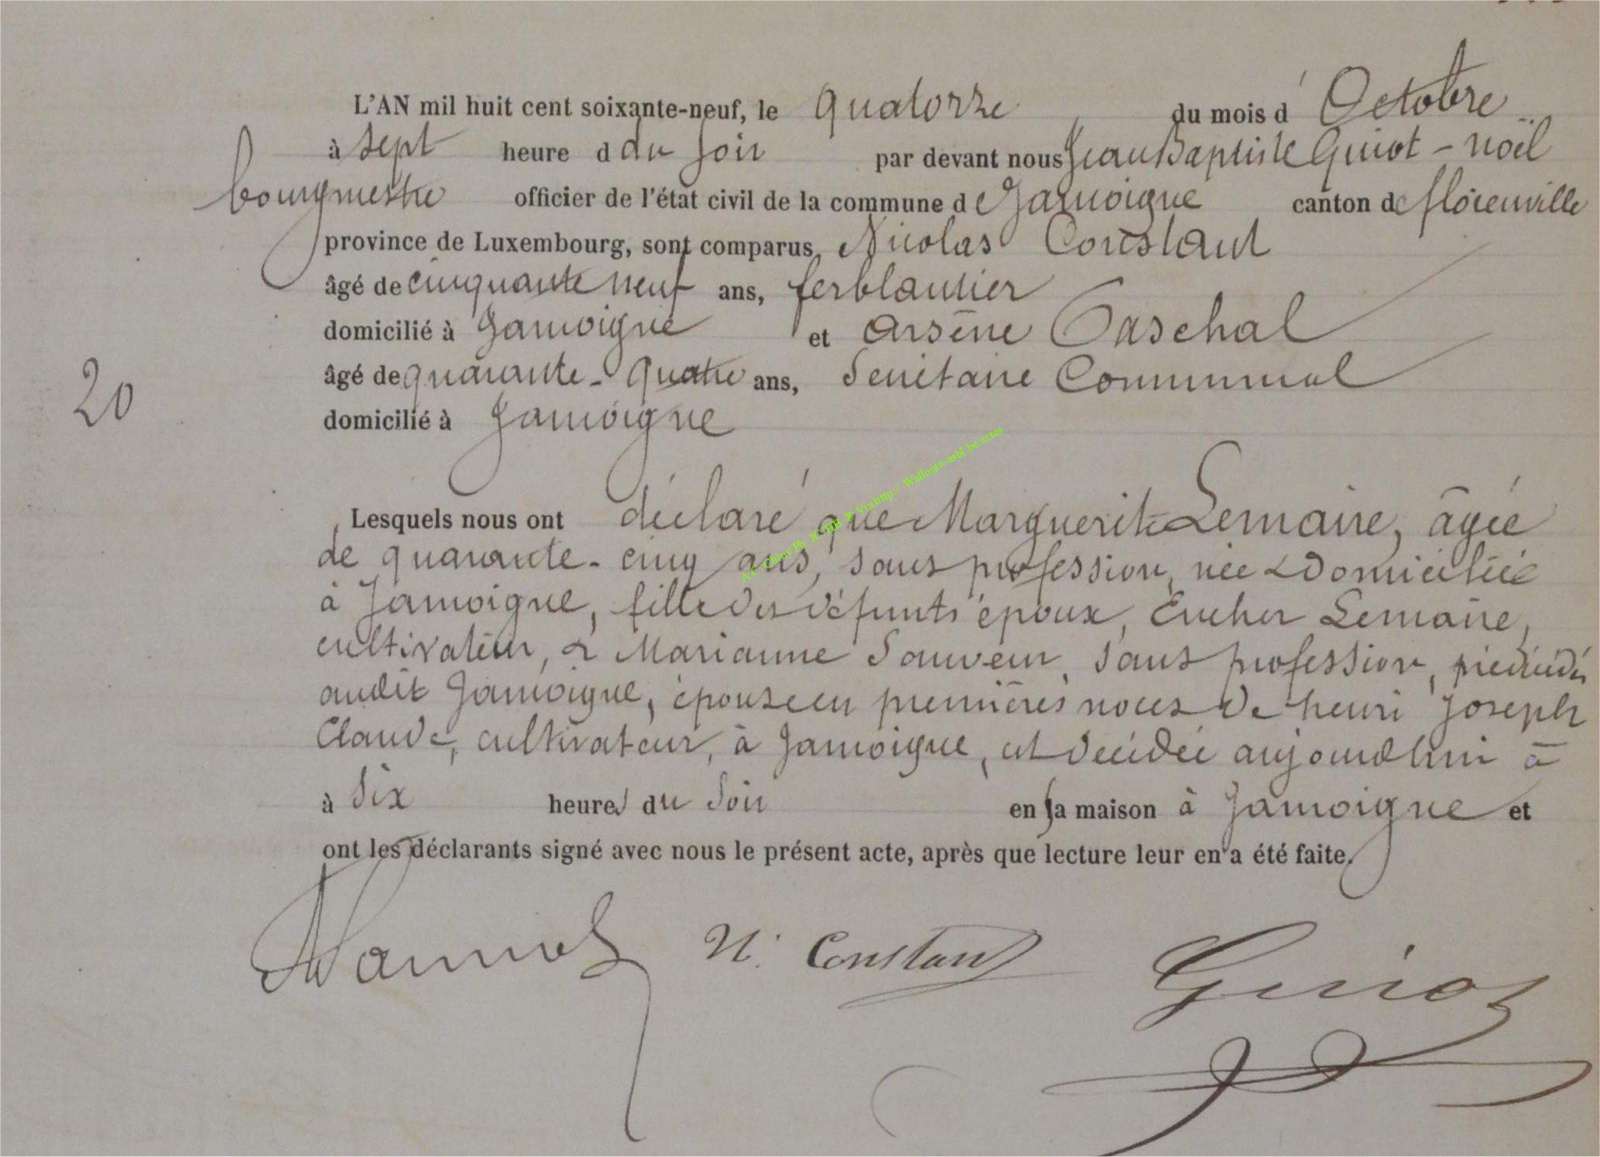 L'AN mil huit cent soixante-neuf, le quatorze du mois d'Octobre
à sept heure d du soir par devant nous Jean Baptiste Guiot - noël
bourgmestre officier de l'état civil de la commune de Jamoigne canton de florenville
province de Luxembourg, sont comparus Nicolas Constant
âgé de cinquante neuf ans, ferblantier
domicilié à Jamoigne et Arsène Paschal
âgé de quarante-quatre ans, Secrétaire Communal
domicilié à Jamoigne
20
Lesquels nous ont déclaré que Marguerite Lemaire, âgée
de quarante-cinq ans, sans profession, née & Domiciliée
à Jamoigne, fille des défunts époux, Eucher Lemaire,
cultivateur, & Marianne Sauveur, sans profession, précédés
audit Jamoigne, épouse en premières noces de henri Joseph
Claude, cultivateur, à Jamoigne, est décédée aujourdhui à
à six heures du soir en sa maison à Jamoigne et
ont les déclarants signé avec nous le présent acte, après que lecture leur en a été faite.
N. Constant Guiot